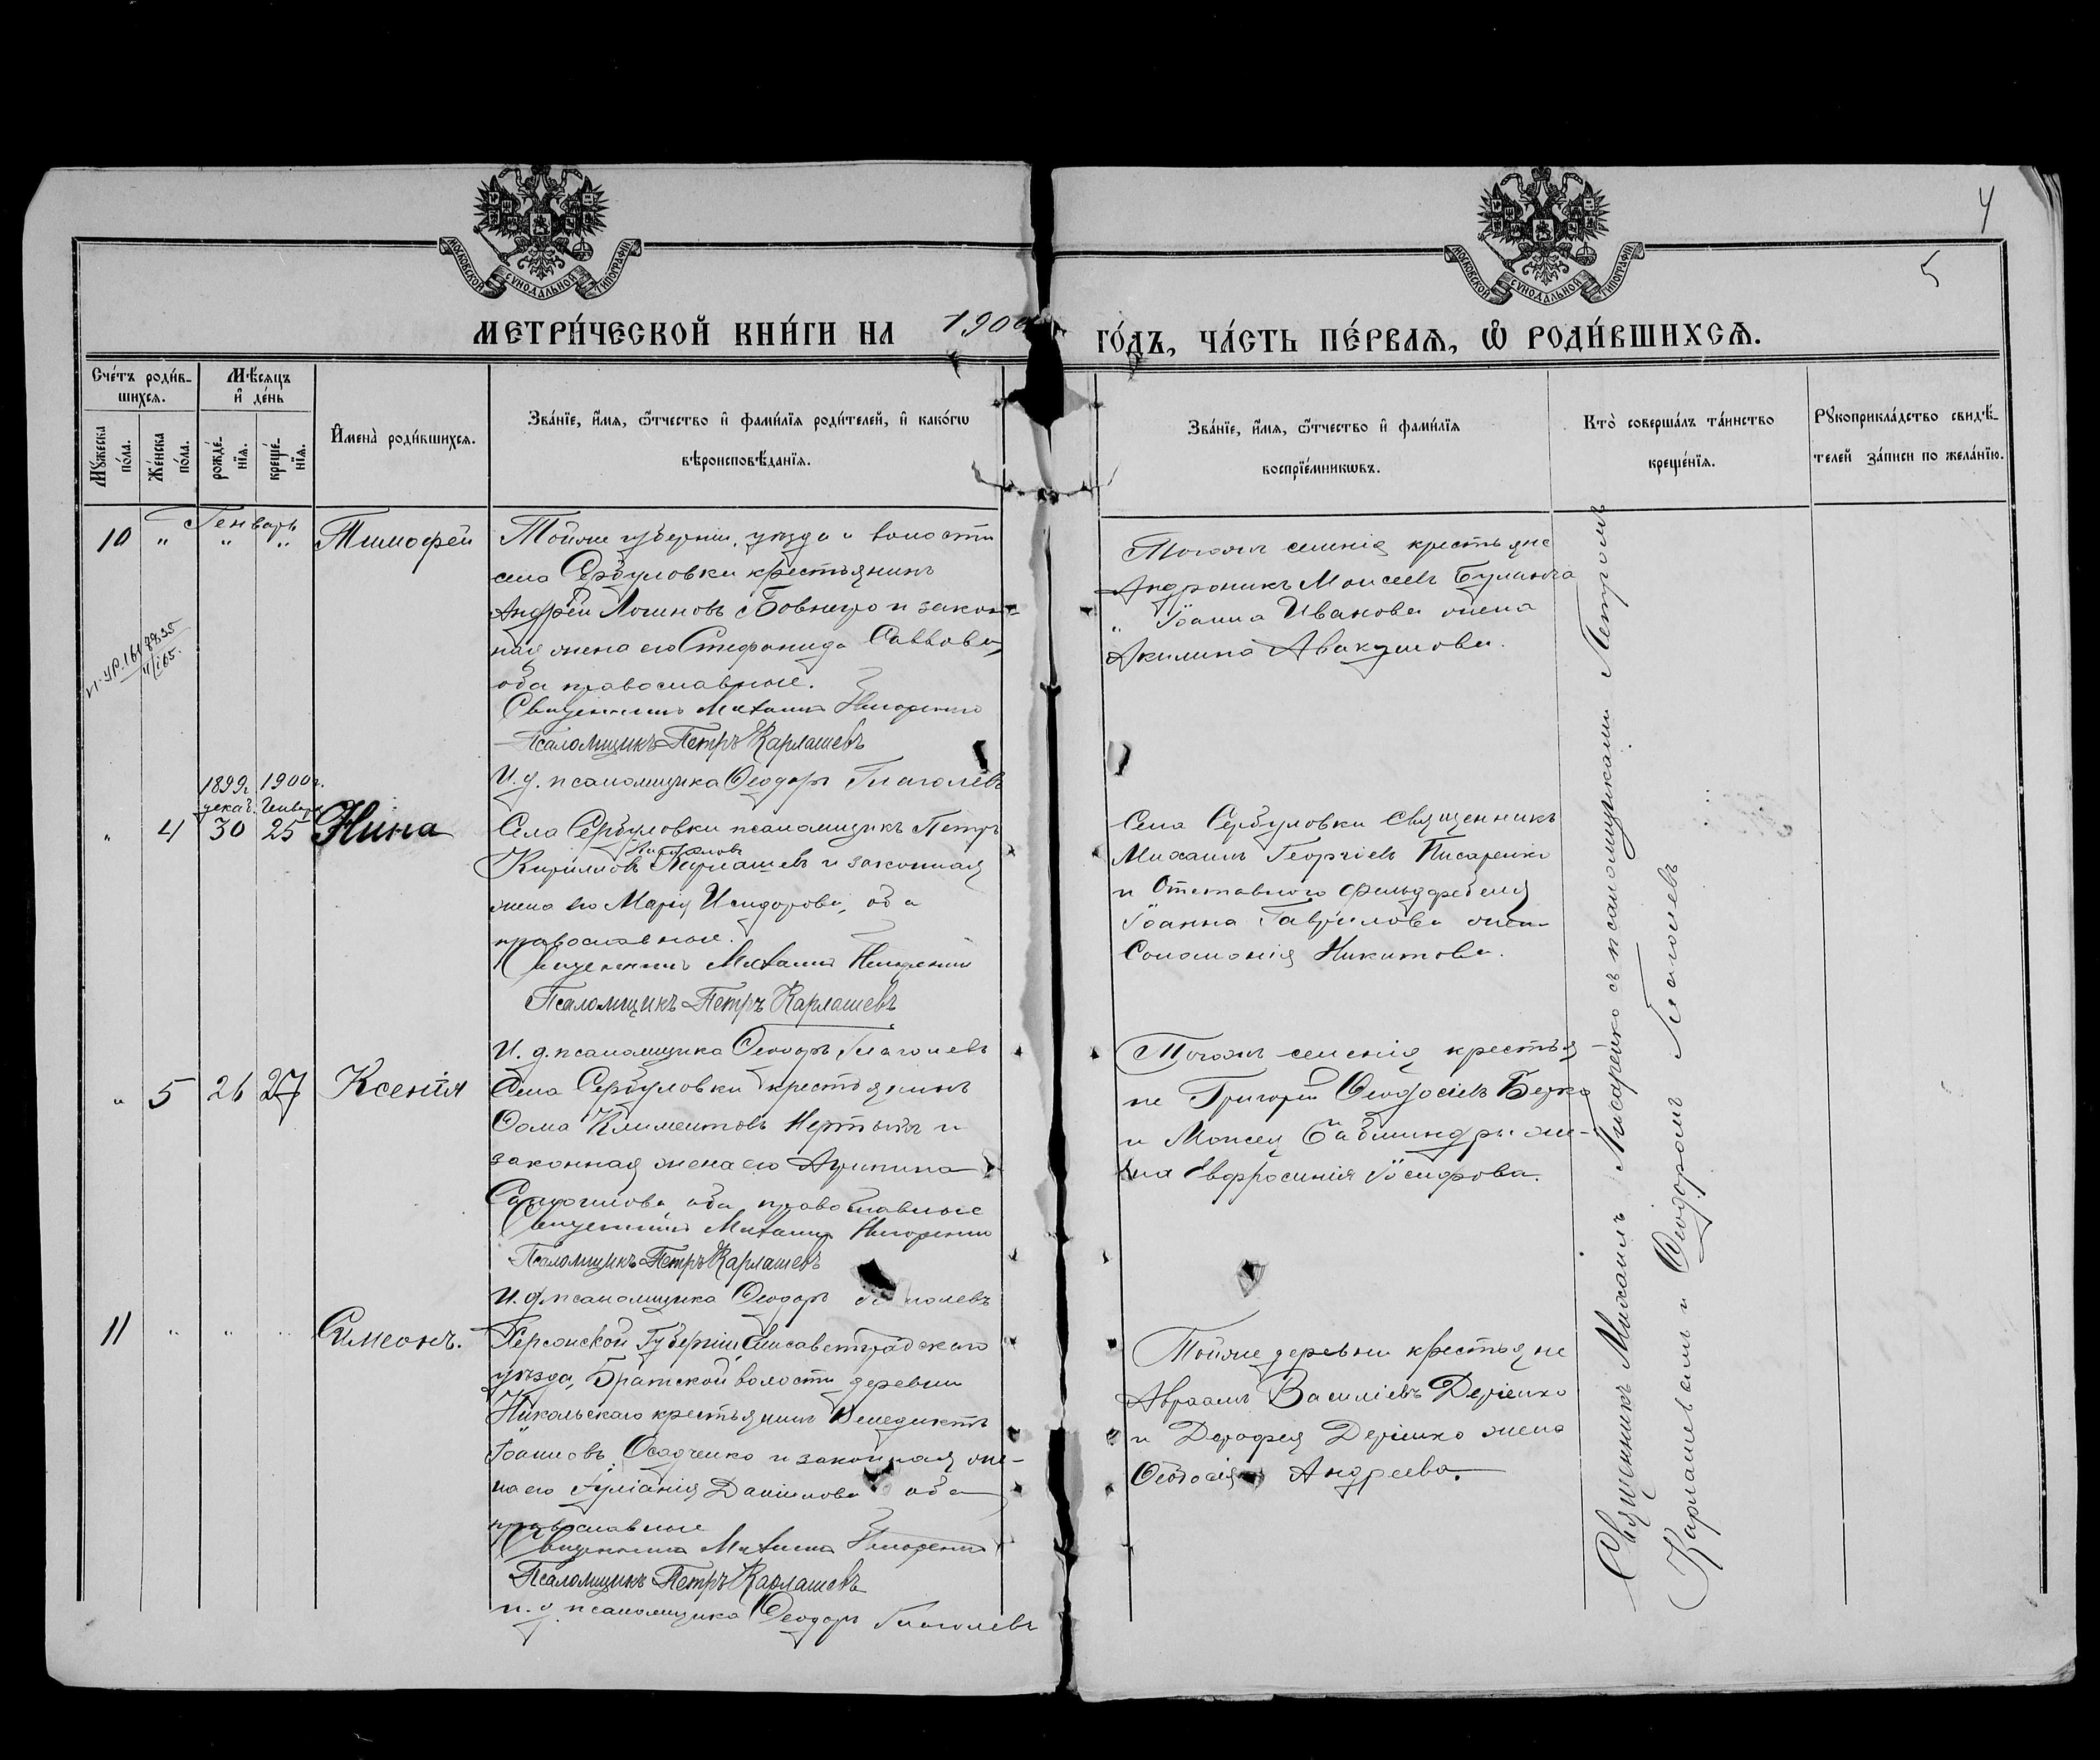 МОСКОВСКОЙ СѴНОДАЛЬНОЙ ТИПОГРАФІИ
МОСКОВСКОЙ СѴНОДАЛЬНОЙ ТИПОГРАФІИ
4
5
МЕТРИ́ЧЕСКОЙ КНИ́ГИ НА 1900 ГО́ДЪ, ЧА́СТЬ ПЕ́РВАѦ, Ѡ҆ РОДИ́ВШИХСѦ.
Сче́тъ роди́в-
шихсѧ.
Мѣ́сѧцъ
и҆ де́нь
Мꙋ́жеска
по́ла.
Же́нска
по́ла.
рожде́-
нїѧ.
креще́-
нїѧ.
И҆мена̀ роди́вшихсѧ.
Зва́нїе, и҆́мѧ, ѻ҆́тчество и҆ фами́лїѧ роди́телей, и҆ како́гѡ
вѣроисповѣ́данїѧ.
Зва́нїе, и҆́мѧ, ѻ҆́тчество и҆ фами́лїѧ
воспрїе́мникѡвъ.
Кто̀ соверша́лъ та́инство
креще́нїѧ.
Рꙋкоприкла́дство свидѣ́-
телей за́писи по жела́нїю.
10 " Генварь " " Тимофей
Тойже губерніи, уѣзда и волости
села Сербуловки крестьянинъ
Андрей Логиновъ и закон-
ная жена его Стефанида Саввова,
оба православные.
Священникъ Михаилъ Писаренко
Псаломщикъ Петръ Карлашевъ
И. д. псаломщика Ѳеодоръ Глаголевъ
Тогожъ селенія крестьяне
Андроникъ Моисеевъ
и Іоанна Иванова жена
Акилина Авакумова.
1899г. 1900г.
декаб. Генварь
" 4 30 25 Нина
Села Сербуловки псаломщикъ Петръ
Кириловъ Карлашевъ и законная
жена его Марія Исидорова, оба
православные.
Священникъ Михаилъ Писаренко
Псаломщикъ Петръ Карлашевъ
И. д. псаломщика Ѳеодоръ Глаголевъ
Села Сербуловки Священникъ
Михаилъ Георгіевъ Писаренко
и Отставного фельдфебеля
Іоанна Гаврилова жена
Соломонія Никитова.
" 5 26 27 Ксенія
Села Сербуловки крестьянинъ
Ѳома Климентовъ и
законная жена его Агрипина
оба православные
Священникъ Михаилъ Писаренко
Псаломщикъ Петръ Карлашевъ
И. д. псаломщика Ѳеодоръ Глаголевъ
Тогожъ селенія крестья-
не Григорій Ѳеодосіевъ
и Моисея же-
на Евфросинія Іосифова.
11 " " " Симеонъ.
Херсонской Губерніи, Елисаветградскаго
уѣзда, Братской волости деревни
Никольскаго крестьянинъ Венедиктъ
Іоанновъ Осадченко и законная же-
на его Іуліанія Даніилова оба
православные
Священникъ Михаилъ Писаренко
Псаломщикъ Петръ Карлашевъ
и. д. псаломщика Ѳеодоръ Глаголевъ
Тойже деревни крестьяне
Авраамъ Василіевъ Деріенко
и Дорофея Деріенко жена
Ѳеодосія Андреева.
Священникъ Михаилъ Писаренко съ псаломщиками Петромъ
Карлашевымъ и Ѳеодоромъ Глаголевъ